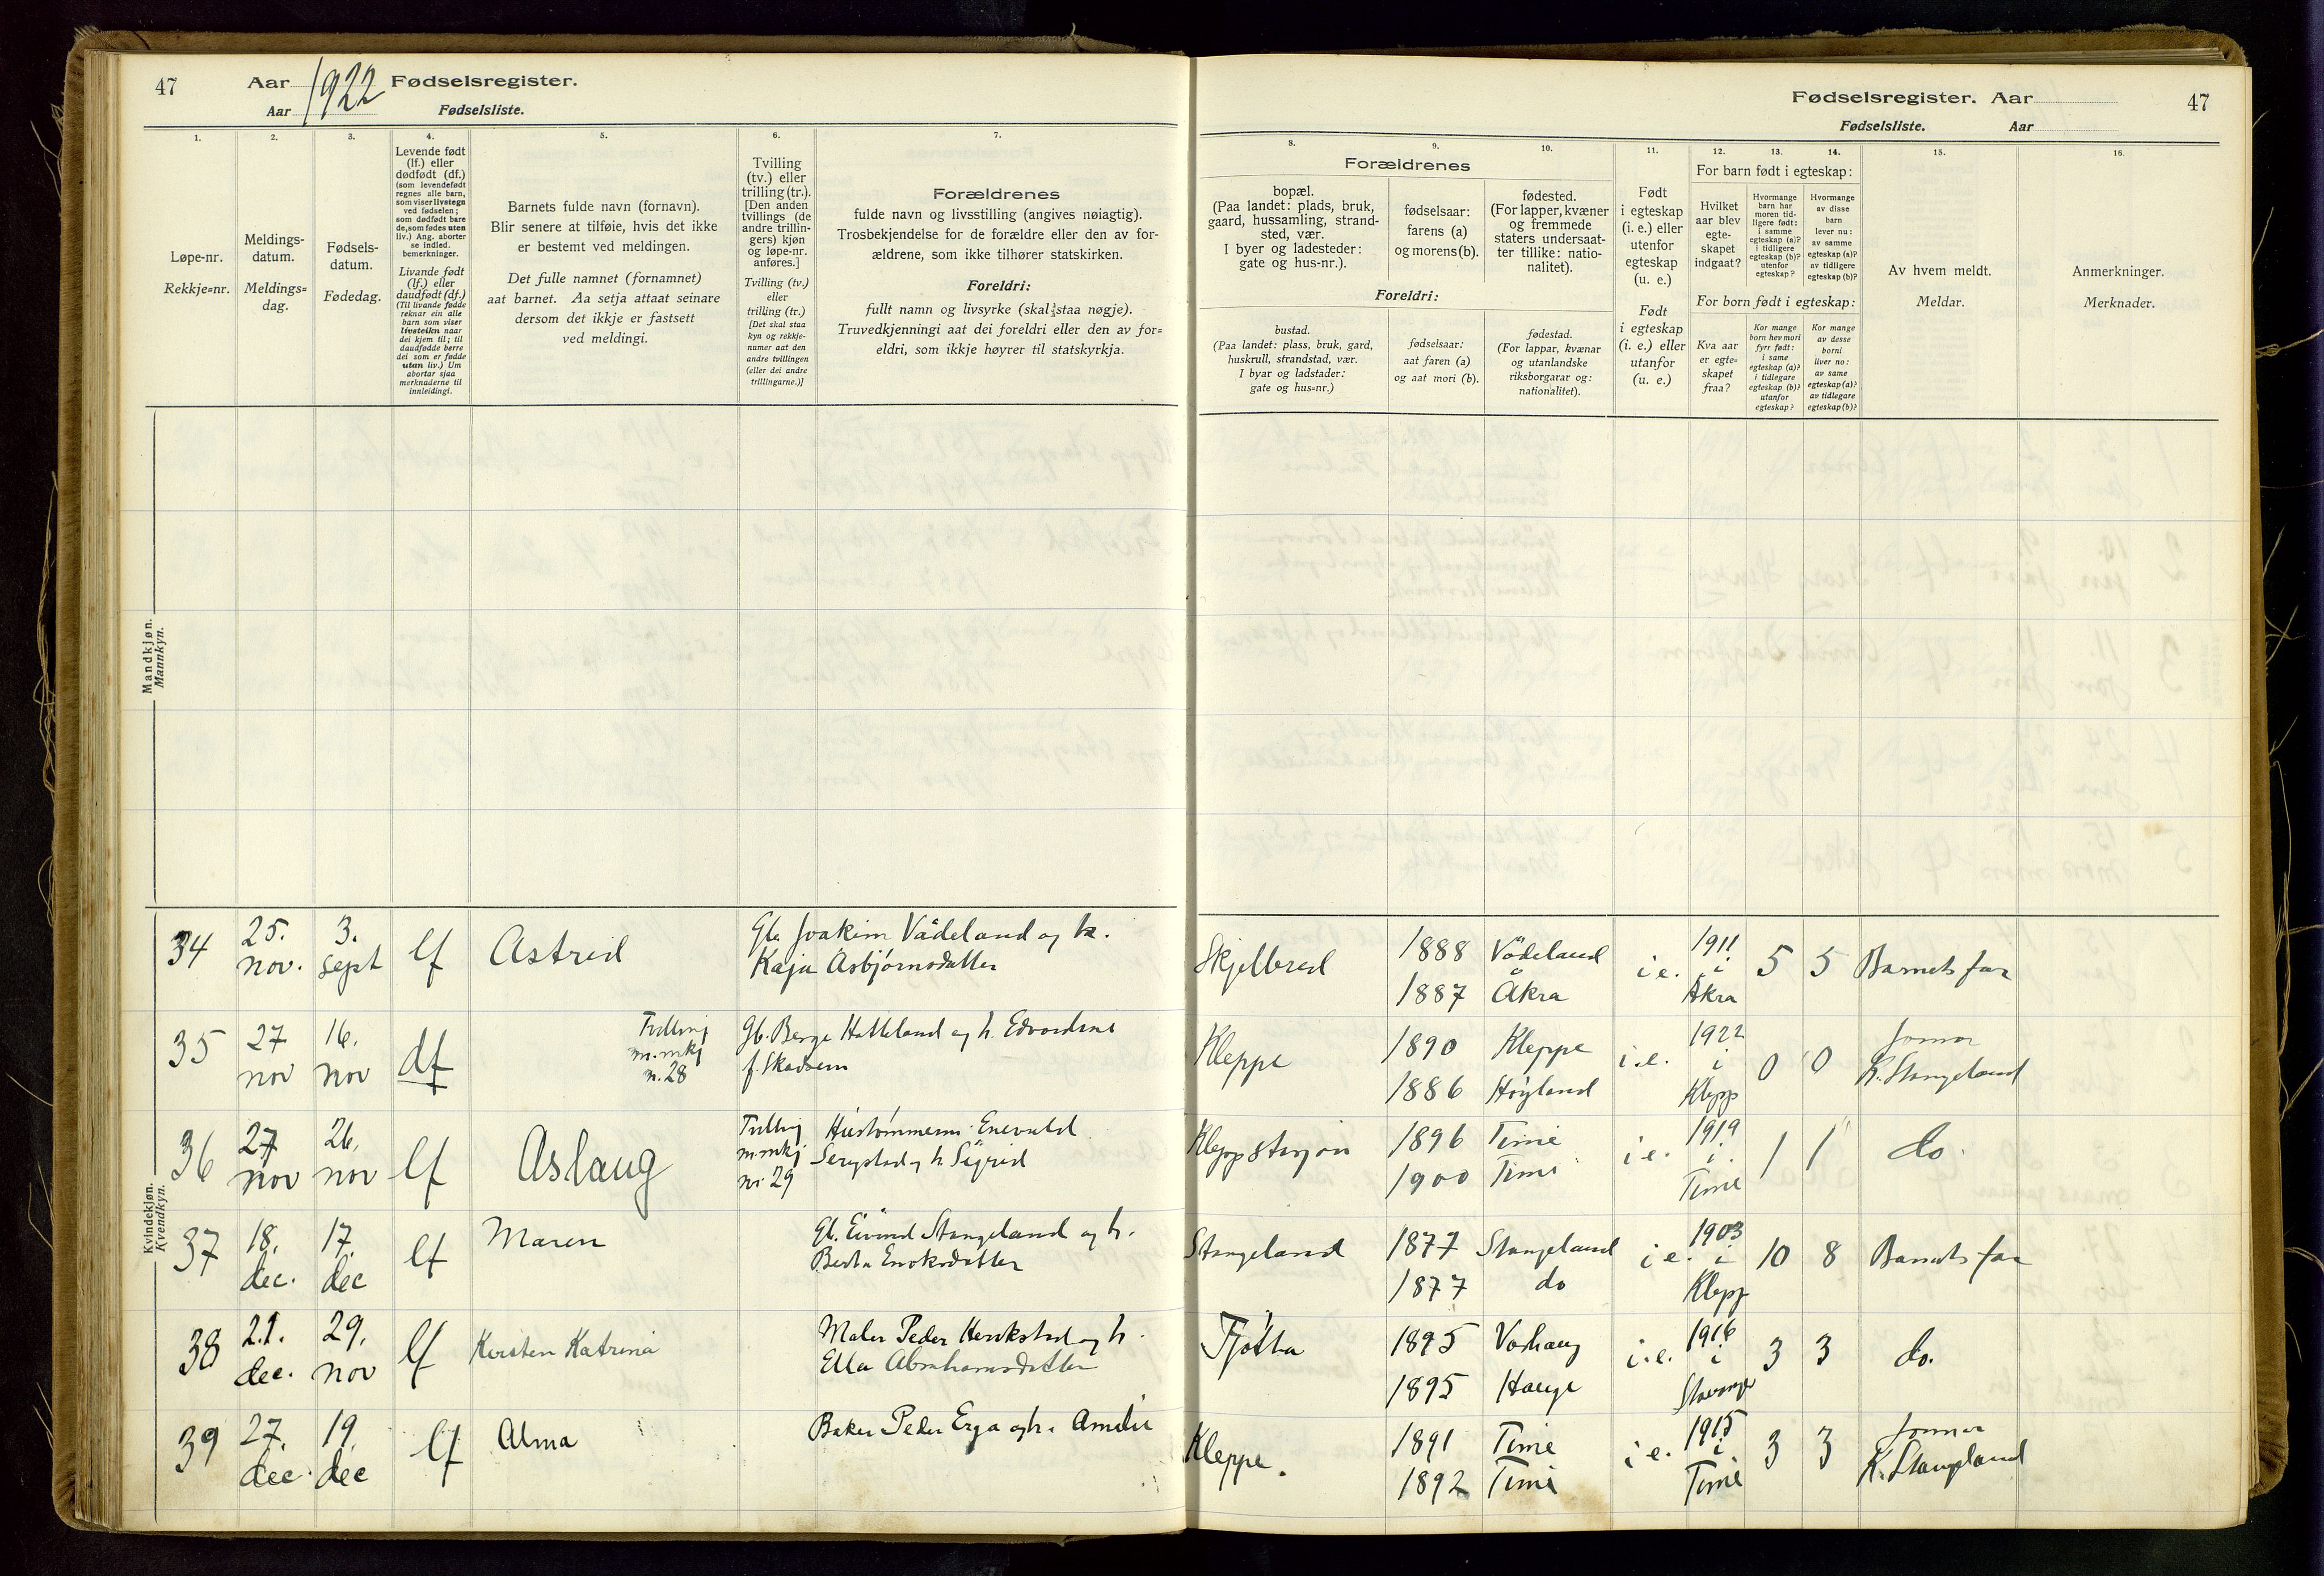 47
Aar 1922 Fødselsregister.
Aar Fødselsliste.
1.
2.
3.
4.
5.
6.
7.
Løpe-nr.
Rekkje=nr.
Meldings-
datum.
Meldings=
dag.
Fødsels-
datum.
Fødedag.
Levende født
(lf.) eller
dødfødt (df.)
(som levendefødt
regnes alle barn,
som viser livstegn
ved fødselen;
som dødfødt bare
de, som fødes uten
liv.) Ang. aborter
se indled.
bemerkninger.
Livande født
(lf.) eller
daudfødt (df.)
(Til livande fødde
reknar ein alle
barn som viser
livsteikn naar
dei kjem til; til
daudfødde berre
dei som er fødde
utan liv.) Um
abortar sjaa
merknaderne til
innleidingi.
Barnets fulde navn (fornavn).
Blir senere at tilføie, hvis det ikke
er bestemt ved meldingen.
Det fulle namnet (fornamnet)
aat barnet. Aa setja attaat seinare
dersom det ikkje er fastsett
ved meldingi.
Tvilling
(tv.) eller
trilling (tr.).
[Den anden
tvillings (de
andre trillin-
gers) kjøn
og løpe-nr.
anføres.]
Tvilling (tv.)
eller
trilling (tr.)
[Det skal staa
kyn og rekkje-
numer aat den
andre tvillingen
(eller dei andre
trillingarne.)]
Forældrenes
fulde navn og livsstilling (angives nøiagtig).
Trosbekjendelse for de forældre eller den av for-
ældrene, som ikke tilhører statskirken.
Foreldri:
fullt namn og livsyrke (skal staa nøgje).
Truvedkjenningi aat dei foreldri eller den av for=
eldri, som ikkje høyrer til statskyrkja.
Mandkjøn.
Mannkyn.
Kvindekjøn.
Kvendkyn.
34 25. nov. 3. sept lf Astrid
Gb. Joakim Vådeland og h.
Kaja Asbjørnsdatter
35 27 nov 16. nov df
Tvilling
m. mkj
n. 28
Gb. Berge Hatteland og h. Edvardine
f. Skadsem
36 27 nov 26. nov lf Aslaug
Tvilling
m mkj
nr 29
Hustømmerm. Enevald
Serigstad og h. Sigrid
37 18. dec. 17. dec lf Maren
Gb. Eivind Stangeland og h.
Berta Enoksdatter
38 21. dec. 29. nov lf Kirsten Katrina
Maler Peder Henrikstad og h.
Ella Abrahamsdatter
39 27. dec. 19. dec lf Alma
Baker Peder Erga og h. Amalie
Fødselsregister. Aar
47
Fødselsliste. Aar
8.
9.
10.
11.
12.
13.
14.
15.
16.
Forældrenes
bopæl.
(Paa landet: plads, bruk,
gaard, hussamling, strand-
sted, vær.
I byer og ladesteder:
gate og hus-nr.).
fødselsaar:
farens (a)
og morens (b).
fødested.
(For lapper, kvæner
og fremmede
staters undersaat-
ter tillike: natio-
nalitet).
Foreldri:
bustad.
(Paa landet: plass, bruk, gard,
huskrull, strandstad, vær.
I byar og ladstader:
gate og hus=nr.)
fødselsaar:
aat faren (a)
og aat mori (b).
fødestad.
(For lappar, kvænar
og utanlandske
riksborgarar og:
nationalitet).
Født
i egteskap
(i. e.) eller
utenfor
egteskap
(u. e.)
Født
i egteskap
(i. e.) eller
utanfor
(u. e.)
For barn født i egteskap:
Hvilket
aar blev
egte-
skapet
indgaat?
Hvormange
barn har
moren tid-
ligere født:
i samme
egteskap (a)?
i tidligere
egteskap (b)?
utenfor
egteskap?
Hvormange
av disse
barn
lever nu:
av samme
egteskap (a)?
av tidligere
egteskap (b)?
For born født i egteskap:
Kva aar
er egte=
skapet
fraa?
Kor mange
born hev mori
fyrr født:
i same
egteskap (a)?
i tidlegare
egteskap (b)?
utanfor
egteskap?
Kor mange
av desse
borni
liver no:
av same
egteskap (a)?
av tidlegare
egteskap (b)?
Av hvem meldt.
Meldar.
Anmerkninger.
Merknader.
Skjelbred 1888 Vådeland i e. 1911 i Åkra 5 5 Barnets far
1887 Åkra
Kleppe 1890 Kleppe i.e. 1922 i Klepp 0 0 Jormor K. Stangeland
1886 Høyland
Klepp stasjon 1896 Time i e. 1919 i Time 1 1 do.
1900 Time
Stangeland 1877 Stangeland i e. 1903 i Klepp 10 8 Barnets far
1877 do
Tjøtta 1895 Varhaug i.e. 1916 i Stavanger 3 3 do.
1895 Hauge
Kleppe. 1891 Time i e. 1915 i Time 3 3 Jormor K. Stangeland
1892 Time